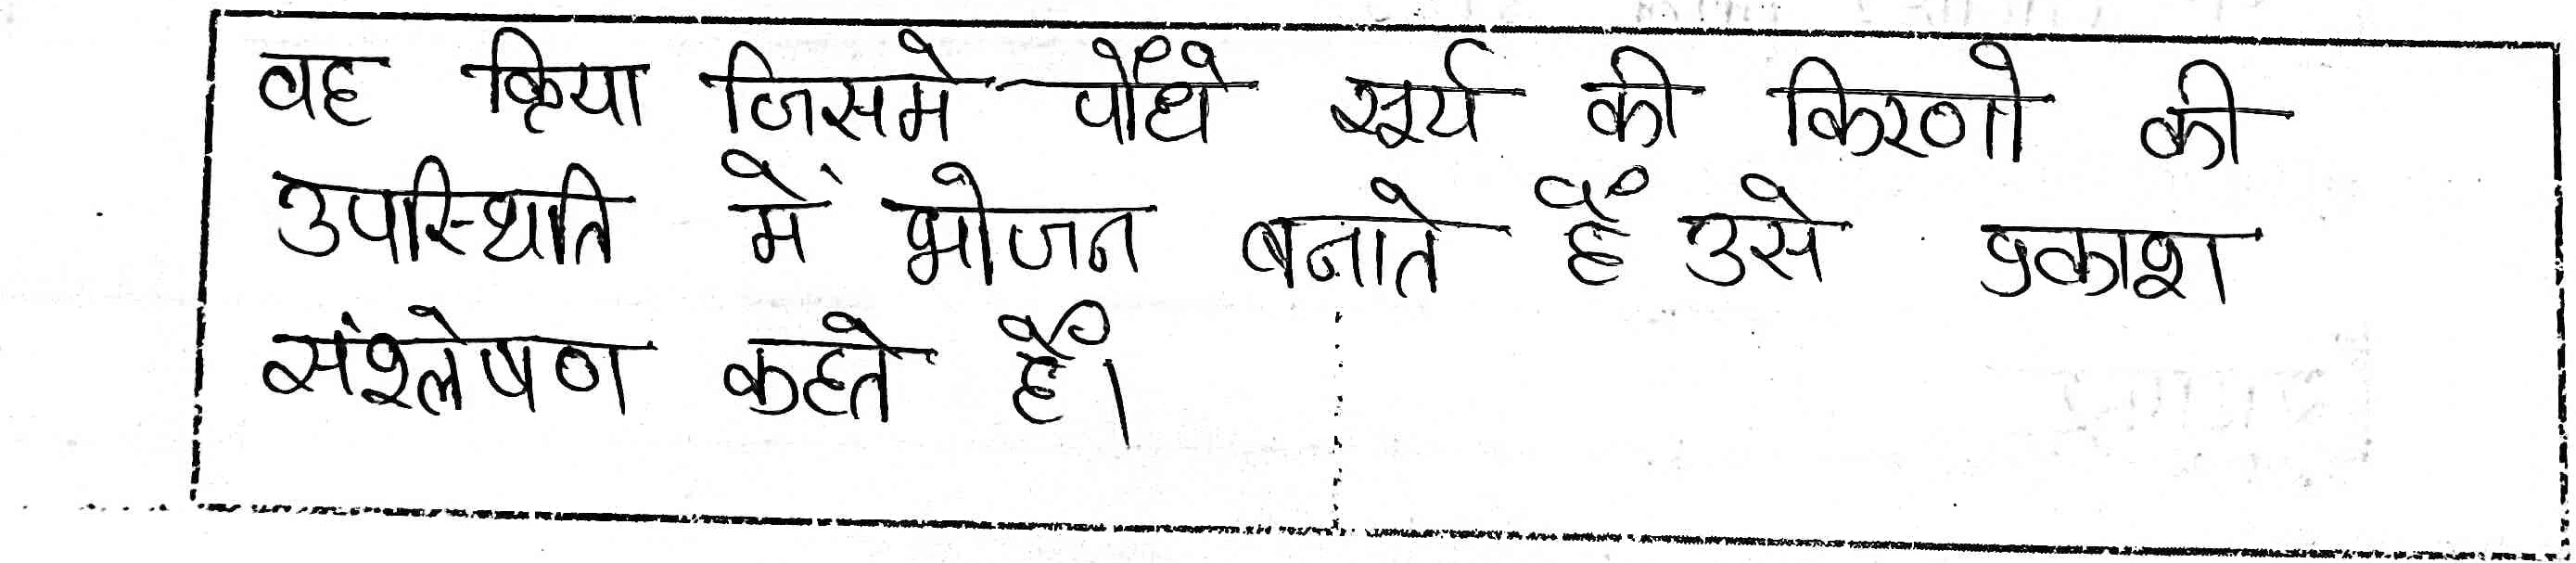 वह क्रिया जिसमे पौधे सूर्य की किरणो की
उपस्थिति में भोजन बनाते हैं उसे प्रकाश
संश्लेषण कहते हैं।